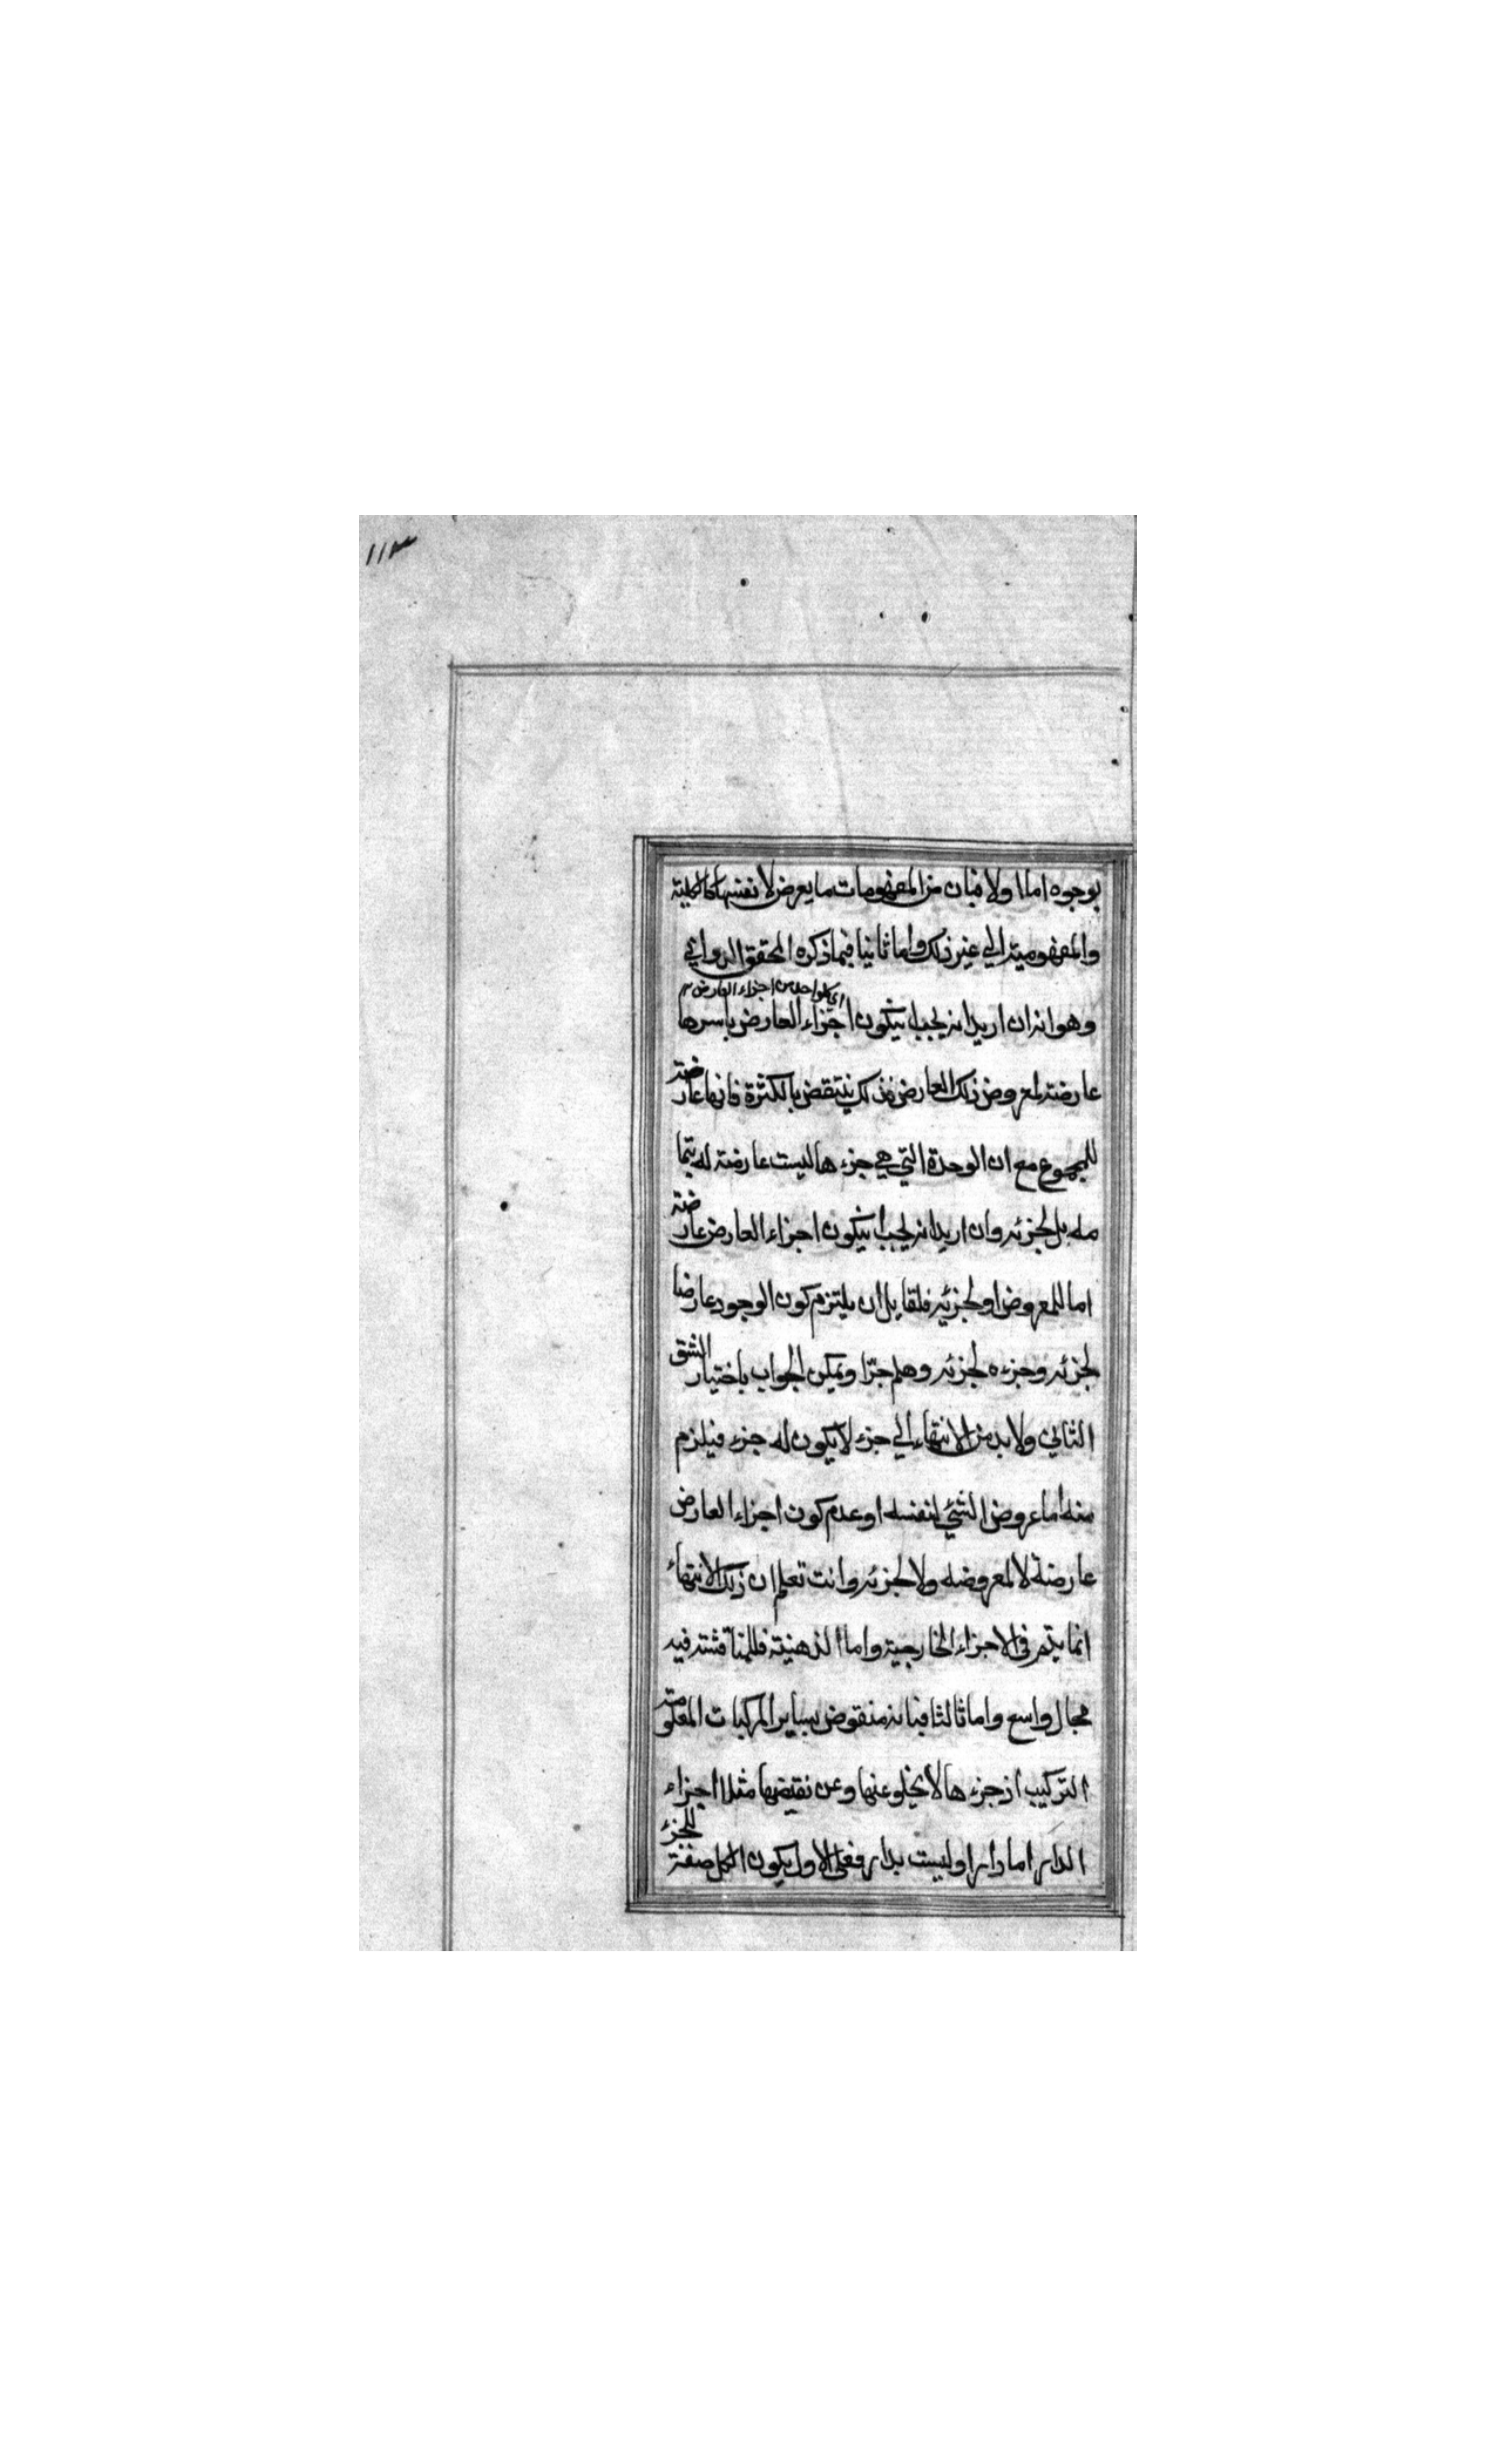 ١١٣
بوجوه اما اولا فبان من المفهومات ما يعرض لانفسها كالكلية
والمفهومية الي غير ذلك واما ثانيا فبما ذكره المحقق الدواني
اي كلواحد من اجزاء العارض
وهو انه ان اريد انه يجب ان يكون اجزاء العارض باسرها
عارضة لمعروض ذلك العارض فذلك ينتقض بالكثرة فانها عارضة
للمجموع مع ان الوحدة التي هي جزءها ليست عارضة له بتما
مه بل لجزئه وان اريد انه يجب ان يكون اجزاء العارض عارضة
اما للمعروض او لجزئه فلقايل ان يلتزم كون الوجود عارضا
لجزئه وجزءه لجزئه وهلم جرّا ويمكن الجواب باختيار الشق
الثاني ولابد من الانتهاء الي جزء لا يكون له جزء فيلزم
منه اما عروض الشئ لنفسه او عدم كون اجزاء العارض
عارضة لا لمعروضه ولا لجزئه وانت تعلم ان ذلك الانتهاء
انما يتم في الاجزاء الخارجية واما الذهنية فللمناقشة فيه
مجال واسع واما ثالثا فبانه منقوض بساير المركبات المعلومة
التركيب اذ جزءها لا يخلو عنها وعن نقيضها مثلا اجزاء
الدار اما دار او ليست بدار فعلي الاول يكون الكل صفة للجزء